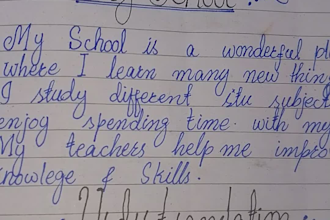 My School
My School is a wonderful
where I learn many new
I study different stu subject
enjoy spending time. with my
My teachers help me
knowlege & Skills.